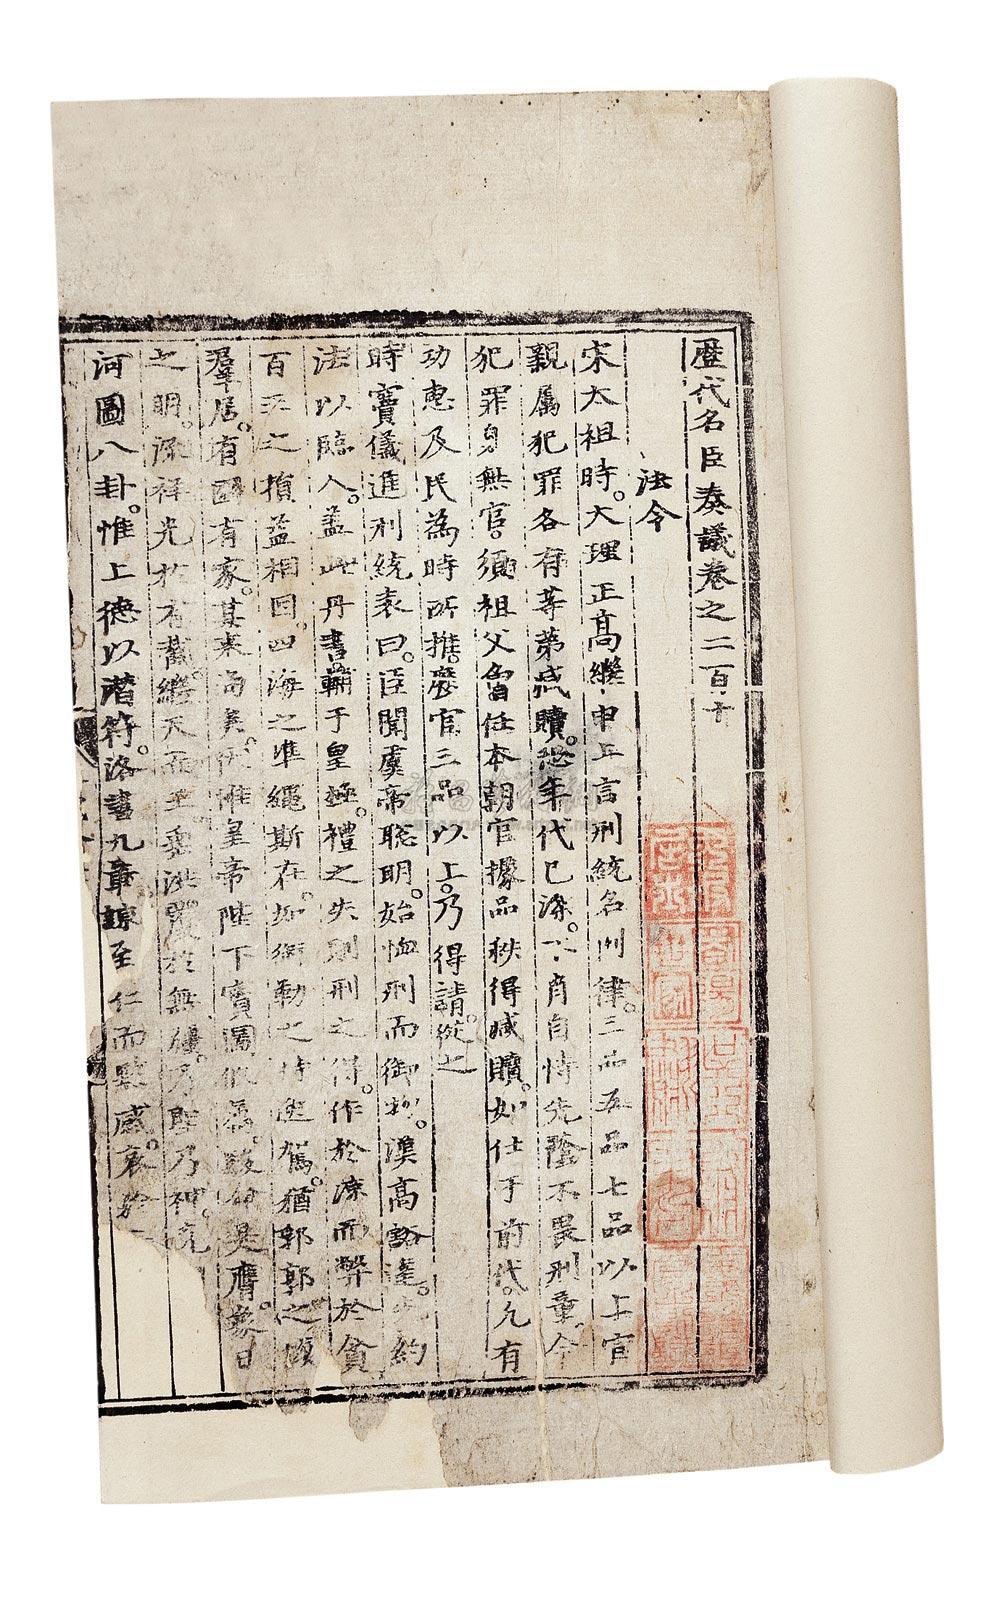 歷代名臣奏議卷之二百十
法令
宋太祖時。大理正高繼申上言刑統名例律。三品五品七品以上官
親屬犯罪各有等第減贖。恐年代已深。不肖自恃先蔭不畏刑章。今
犯罪身無官。須祖父曾任本朝官據品秩得減贖。如仕于前代。允有
功惠及民為時所推。歷官三品以上。乃得請。從之
時竇儀進刑統表曰。臣聞虞帝聰明。始恤刑而御物。漢高豁達。先約
法以臨人。蓋此丹書輔于皇極。禮之失則刑之得。作於涼而弊於貪
百王之損益相因。四海之準繩斯在。如銜勒之持逸駕。猶郛郭之
羣居。有國有家。其來尚矣。伏惟皇帝陛下寶圖膺 象日
之明。流祥光於有 繼天而王。垂洪 於無疆。乃聖乃神。克
河圖八卦。惟上德以潛符。洛書九章。諒至仁而默感。哀矜